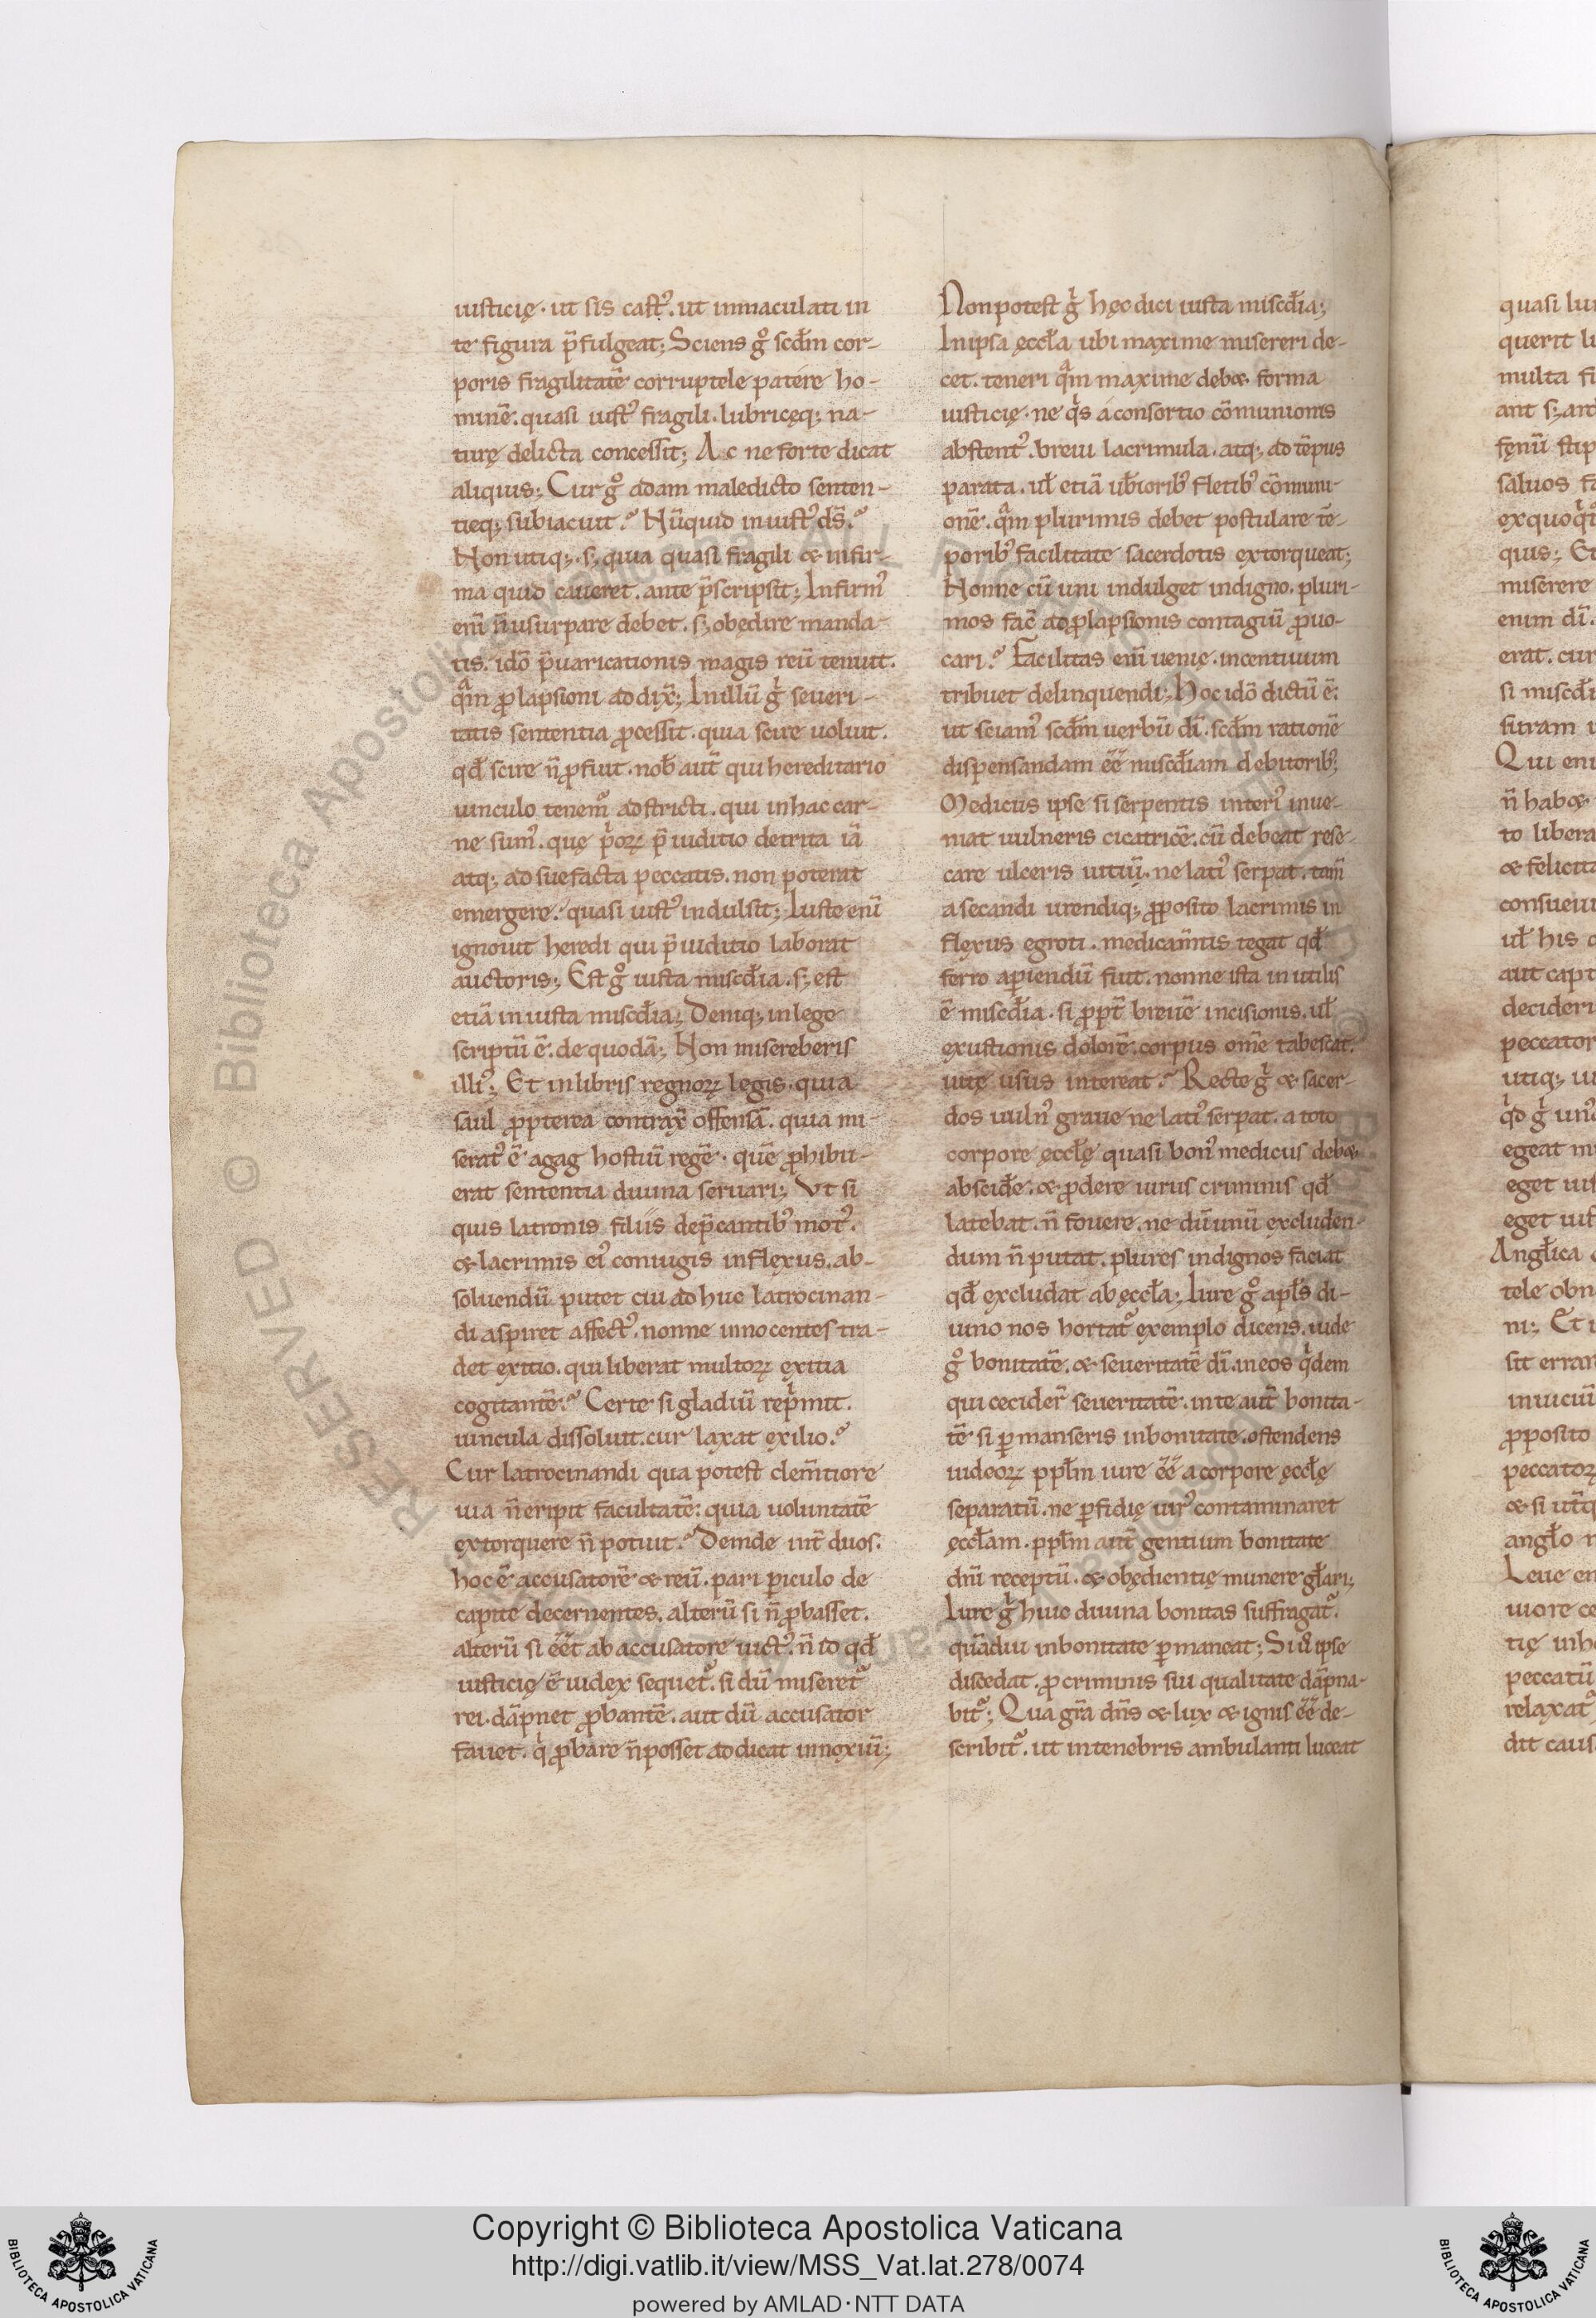 iusticię · ut sis castꝰ. ut inmaculati in
te figura p̄fulgeat; Sciens gͦ scd̄m cor-
poris fragilitatē corruptele patére ho-
minē. quasi iustꝰ fragili. lubricęq; na-
turę delicta concessit; Ac ne forte dicat
aliquis; Cur gͦ adam maledicto senten-
tieq; subiacuit? Nūquid iniustꝰ ds̄?
Non utiq;. s; quia quasi fragili & infir-
ma quid caueret. ante p̄scripsit; Infirmꝰ
eni̅ n̄ usurpare debet. s; obędire manda-
tis. idō p̄uaricationis magis reū tenuit.
qᵃ̄m ꝓlapsioni addix̄; In illū gⁱ seueri-
tatis sententia ꝓcessit. quia scire uoluit.
qd̄ scire n̄ ꝓfuit. nob̄ aut̄ qui hereditario
uinculo tenemᷣ adstricti. qui in hac car-
ne sumꝰ. quę pⁱoꝝ p̄iuditio detrita iā
atq; adsuefacta peccatis. non poterat
emergere. quasi iustꝰ indulsit; Iuste enī
ignouit heredi qui p̄iuditio laborat
auctoris; Est gͦ iusta miscd̄ia. s; est
etiā iniusta miscd̄ia; Deniq; in lege
scriptū ē. de quodā; Non misereberis
illiꝰ; Et in libris regnoꝝ legis. quia
saul ꝓpterea contrax̄ offensā. quia mi-
seratꝰ ē agag hostiū regē. quē ꝓhibu-
erat sententia diuina seruari; Vt si
quis latronis filiis dep̄cantibꝰ motꝰ.
& lacrimis eiꝰ coniugis inflexus. ab-
soluendū putet cui adhuc latrocinan-
di aspiret affectꝰ. nonne innocentes tra-
det exitio. qui liberat multoꝝ exitia
cogitantē? Certe si gladiū repⁱmit.
uincula dissoluit. cur laxat exilio?
Cur latrocinandi qua potest clem̄tiore
uia n̄ eripit facultatē: quia uoluntatē
extorquere n̄ potuit? Deinde int̄ duos.
hoc ē accusatorē & reū. pari ꝑiculo de
capite decernentes. alterū si n̄ ꝓbasset.
alterū si ēēt ab accusatore uictꝰ. n̄ id qd̄
iusticię ē iudex sequetᷣ. si dū miseretᷣ
rei. dāpnet ꝓbantē. aut dū accusator
fauet. qⁱ ꝓbare n̄ posset addicat innoxiū;
Non potest gⁱ hęc dici iusta miscd̄ia;
In ipsa ęccl̄a ubi maxime misereri de-
cet. teneri qᵃ̄m maxime deb& forma
iusticię. ne qⁱs á consortio cōmunionis
abstentꝰ. breui lacrimula. atq; ad tēpus
parata. ul̄ etiā ub̄ioribꝰ fletibꝰ cōmuni-
onē. qᵃ̄m plurimis debet postulare tē-
poribꝰ facilitate sacerdotis extorqueat;
Nonne cū uni indulget indigno. pluri-
mos fac̄ ad ꝓlapsionis contagiū ꝓuo-
cari? Facilitas eni̅ uenię. incentiuum
tribuet delinquendi; Hoc idō dictū ē.
ut sciamꝰ scd̄m uerbū dī. scd̄m rationē
dispensandam ēē miscd̄iam debitoribꝰ;
Medicus ipse si serpentis interiꝰ inue-
niat uulneris cicatricē. cū debeat rese-
care ulceris uitiū. ne latiꝰ serpat. tam̄
a secandi urendiq; ꝓposito lacrimis in
flexus egroti. medicam̄tis tegat qd̄
ferro apiendū fuit. nonne ista inutilis
ē miscd̄ia. si ꝓpt̄ breuē incisionis. ul̄
exustionis dolorē. corpus omē tabescat.
uitę usus intereat? Recte gⁱ & sacer-
dos uulnꝰ graue ne latiꝰ serpat. a toto
corpore ęccl̄ę quasi bonꝰ medicus deb&
abscid̄e. & ꝓdere uirus criminis qd̄
latebat. n̄ fouere. ne dū unū excluden-
dum n̄ putat. plures indignos faciat
qd̄ excludat ab ęccl̄a; Iure gͦ apl̄s di-
uino nos hortatᷣ exemplo dicens. uide
gͦ bonitatē. & seueritatē dī. in eos qⁱdem
qui cecider̄ seueritatē. in te aut̄ bonita-
tē si ꝑmanseris in bonitate. ostendens
iudeoꝝ ppl̄m iure ēē a corpore ęccl̄ę
separatū. ne ꝑfidię uirꝰ contaminaret
ęccl̄am. ppl̄m aut̄ gentium bonitate
dn̄i receptū. & obędientię munere gl̄ari;
Iure gⁱ huic diuina bonitas suffragatᷣ.
quādiu in bonitate ꝑmaneat; Si ipse
discedat. ꝓ criminis sui qualitate dāpna-
bitᷣ; Qua gr̄a dn̄s & lux & ignis ēē de-
scribitᷣ. ut in tenebris ambulanti luceat
quasi
querit
multa
saluos
quis; Et
miserere
enim dī.
erat. cur
Qui
n̄ hab&
to libera
consueui
ul̄ his
aut capt
decideri
peccator
Anglica
ꝓposito
peccatoꝝ
peccatū
relaxatᷣ
dit caus
RESERVED © Biblioteca Apostolica Vaticana. ALL RIGHTS
Copyright © Biblioteca Apostolica Vaticana
http://digi.vatlib.it/view/MSS_Vat.lat.278/0074
powered by AMLAD·NTT DATA
BIBLIOTECA APOSTOLICA VATICANA
BIBLIOTECA APOSTOLICA VATICANA